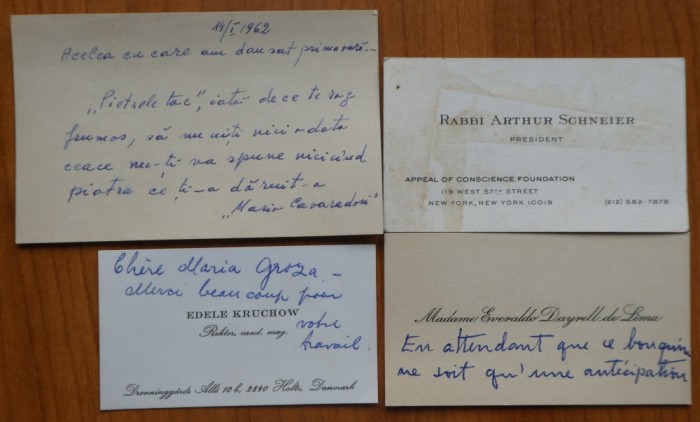 14/I 1962
Acelea cu care am dansat prima oară...
„Pietrele tac", iată de ce te rog
frumos, să nu uiți nici o dată
ceace nu-ți va spune nicicînd
piatra ce ți-a dăruit-o
„Mario Cavaradosi"
RABBI ARTHUR SCHNEIER
PRESIDENT
APPEAL OF CONSCIENCE FOUNDATION
119 WEST 57TH STREET
NEW YORK, NEW YORK 10019 (212) 582-7878
Chère Maria Groza –
Merci beaucoup pour
EDELE KRUCHOW
votre
Rektor, cand. mag.
travail.
Dronninggårds Allé 10 b, 2840 Holte, Danmark
Madame Everaldo Dayrell de Lima
En attendant que ce bouquin
ne soit qu'une anticipation